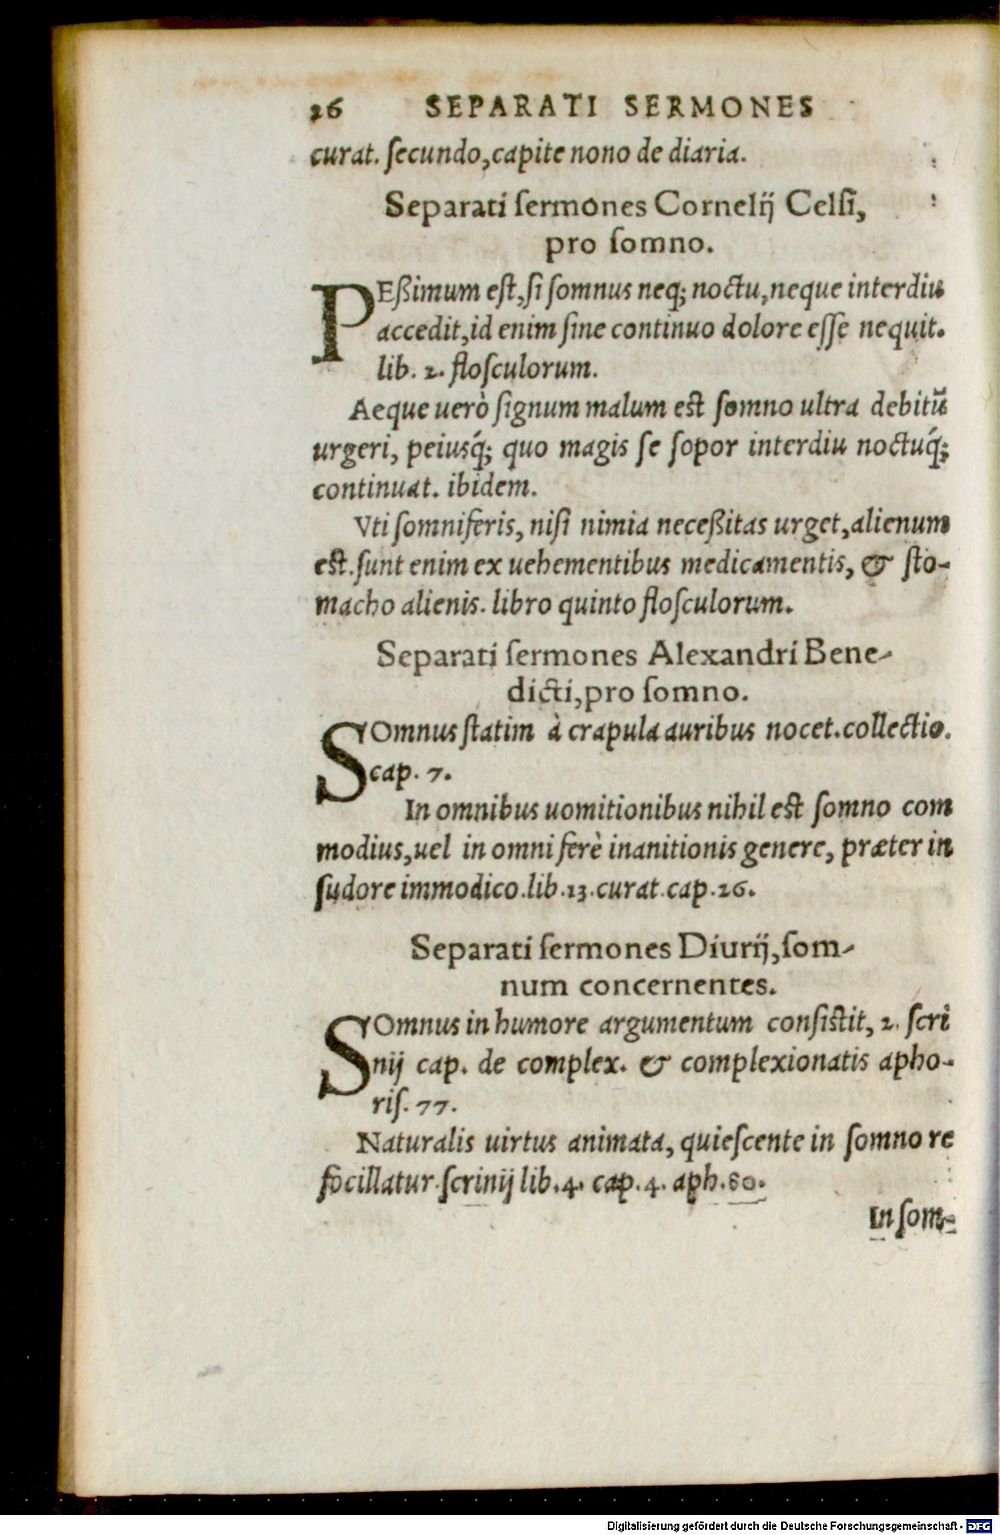 26 SEPARATI SERMONES
curat. ſecundo, capite nono de diaria.
Separati ſermones Cornelij Celſi,
pro ſomno.
PEßimum eſt, ſi ſomnus neq; noctu, neque interdiu
accedit, id enim ſine continuo dolore eſſe nequit.
lib. 2. floſculorum.
Aeque uerò ſignum malum eſt ſomno ultra debitũ
urgeri, peiusq́; quo magis ſe ſopor interdiu noctuq́;
continuat. ibidem.
Vti ſomniferis, niſi nimia neceßitas urget, alienum
eſt. ſunt enim ex uehementibus medicamentis, & ſto-
macho alienis. libro quinto floſculorum.
Separati ſermones Alexandri Bene-
dicti, pro ſomno.
SOmnus ſtatim à crapula auribus nocet. collectio.
cap. 7.
In omnibus uomitionibus nihil eſt ſomno com
modius, uel in omni ferè inanitionis genere, præter in
ſudore immodico. lib. 13. curat. cap. 26.
Separati ſermones Diurij, ſom-
num concernentes.
SOmnus in humore argumentum conſiſtit, 2. ſcri
nij cap. de complex. & complexionatis apho-
riſ. 77.
Naturalis uirtus animata, quieſcente in ſomno re
focillatur. ſcrinij lib. 4. cap. 4. aph. 80.
In ſom-
Digitalisierung gefördert durch die Deutsche Forschungsgemeinschaft - DFG